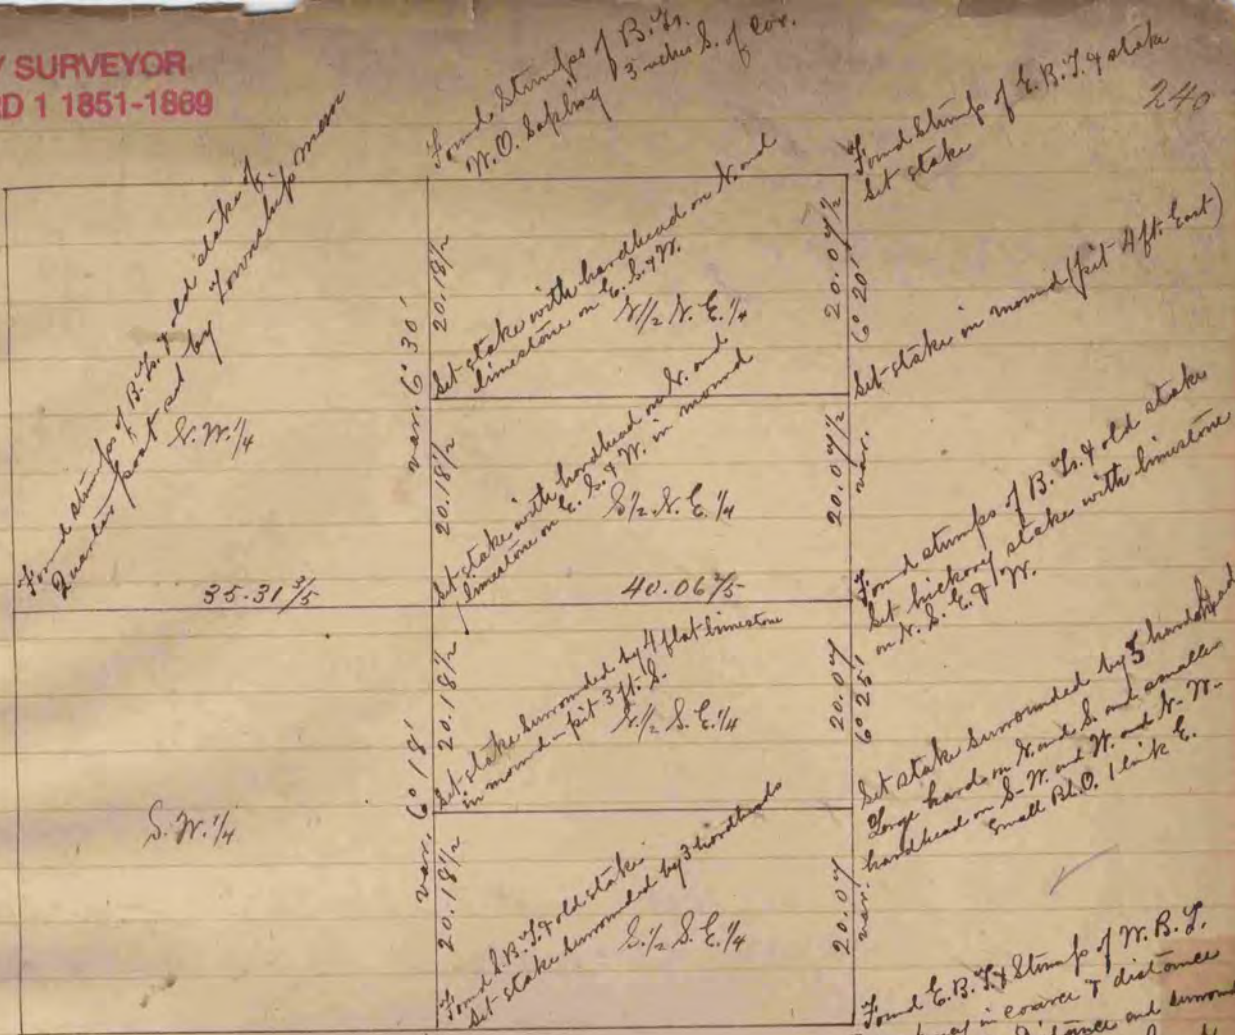 Y SURVEYOR
RD 1 1851-1869
240
Found Stumps of B.Ts.
W.O. Sapling 3 inches S. of Cor.
Found Stump of E.B.T. & stake
Set stake
Found stumps of B.Ts. & old stake of
Quarter post set by Township men
N.W. 1/4
var. 6° 30'
20.18 1/2
Set stake with hardhead on N. and
limestone on E. S. & W.
N 1/2 N.E. 1/4
20.07 1/2
6° 20'
Set stake in mound (pit 4 ft. East)
20.18 1/2
Set stake with hardhead on N. and
limestone on E. S. & W. in mound
S 1/2 N.E. 1/4
20.07 1/2
var.
Found stumps of B.Ts. & old stake
Set hickory stake with limestone
on N. S. E. & W.
35.31 3/5
40.06 2/5
var. 6° 18'
20.18 1/2
Set stake surrounded by 4 flat limestone
in mound - pit 3 ft. S.
N 1/2 S.E. 1/4
20.07
6° 25'
Set stake surrounded by 5 hardhead
Large hards on N. and S. and smaller
hardhead on S-W. and W. and N-W-
Small Bl.O. 1 link E.
S.W. 1/4
20.18 1/2
Found S.B.T. & old stake
Set stake surrounded by 3 hardheads
S. 1/2 S.E. 1/4
20.07
var.
Found E.B.T. & Stump of W.B.T.
in course & distance
distance and